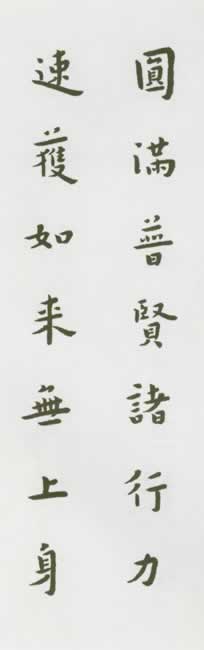 圓滿普賢諸行力
速獲如来無上身